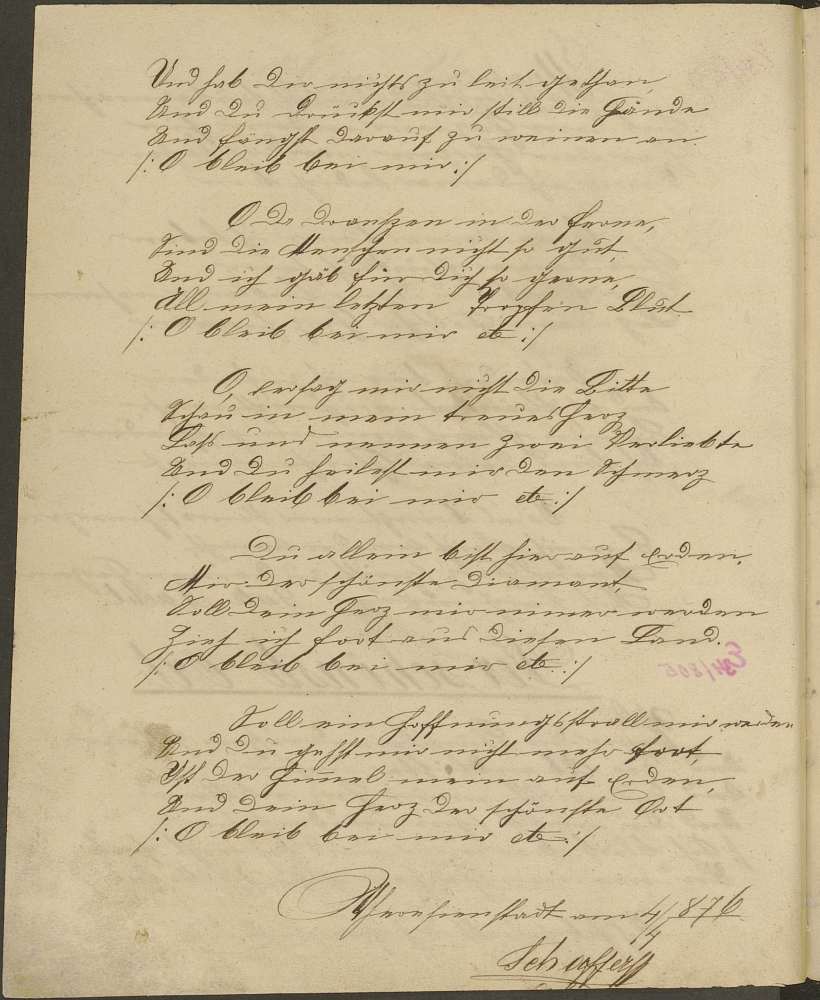 Und hab Dir nichts zu leit gethan,
Und Du drückst mir still die Hände
Und fängst darauf zu weinen an.
/: O bleib bei mir :/
O Da draußzen in der ferne,
Sind die Menschen nicht so gut,
Und ich gäb für Dich so gerne,
All mein letzten Tropfen Blut
/: O bleib bei mir etc :/
O, versag mir nicht die Bitte
Schau in mein treues Herz
Lass uns nennen zwei Verliebte
Und Du heilest mir den Schmerz
/: O bleib bei mir etc :/
Du allein bist hier auf Erden,
Mir der schönste Diamant,
Soll Dein Herz mir nimer werden
Zieh ich fort aus diesen Land.
/: O bleib bei mir etc :/
Soll ein Hoffnungsstrall mir werden
Und Du gehst mir nicht mehr fort,
Ist der Himmel mein auf Erden,
Und Dein Herz der schönste Ort
/: O bleib bei mir etc :/
Theresienstadt am 4/4 876